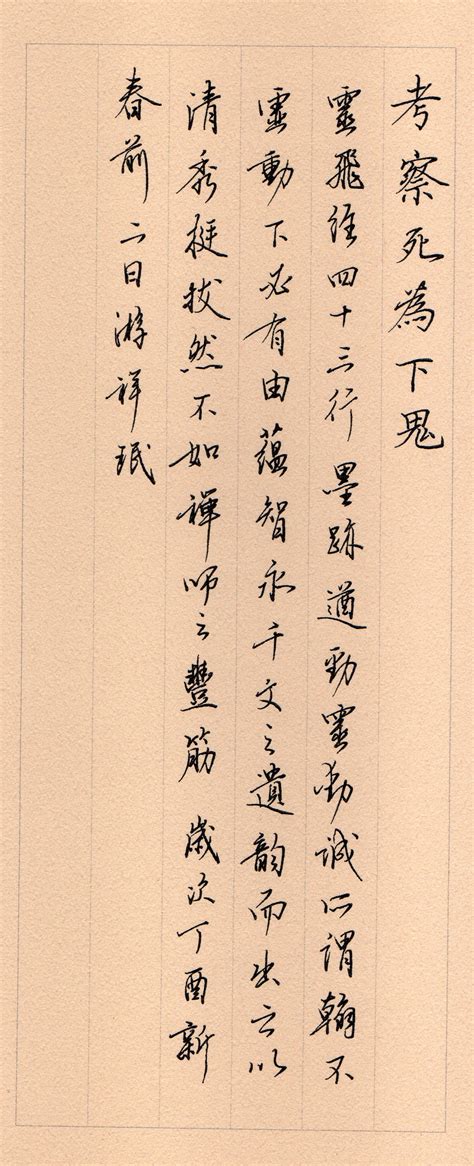 考察死為下鬼
靈飛經四十三行墨跡遒勁靈動誠所謂翰不
靈動下必有由蘊智永千文之遺韵而出之以
清秀挺拔然不如禪師之豐筋 歲次丁酉新
春前二日游祥珉